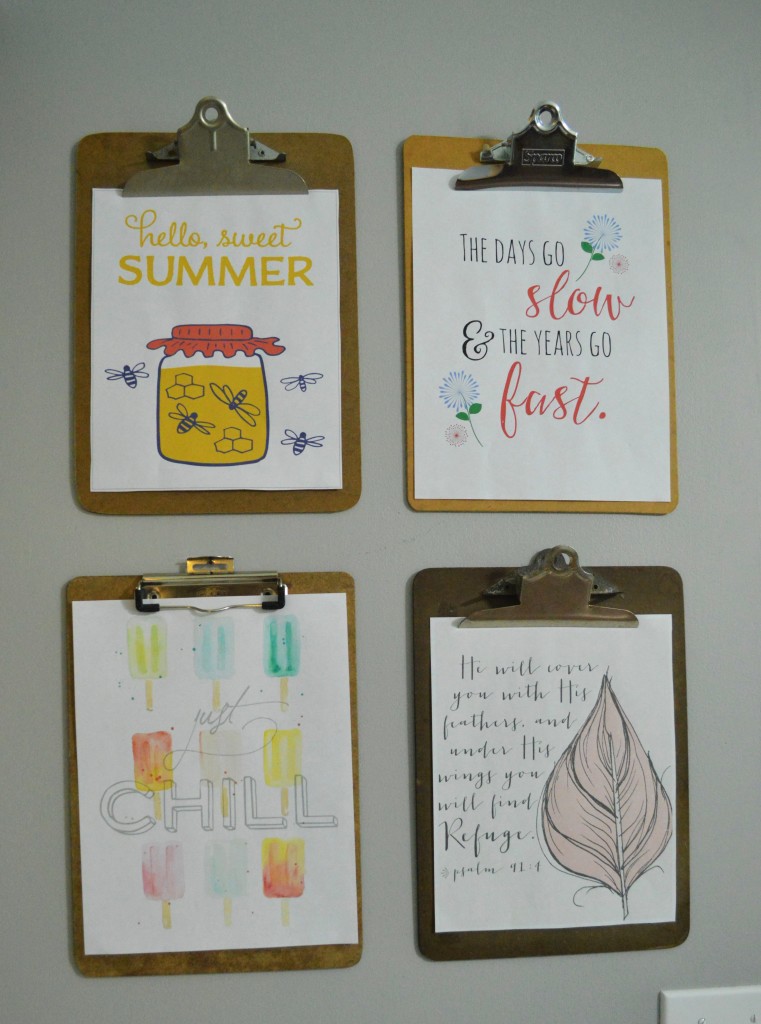 hello, sweet
SUMMER
THE DAYS GO
slow
& THE YEARS GO
fast.
just
CHILL
He will cover
you with His
feathers, and
under His
wings you
will find
Refuge.
psalm 91:4